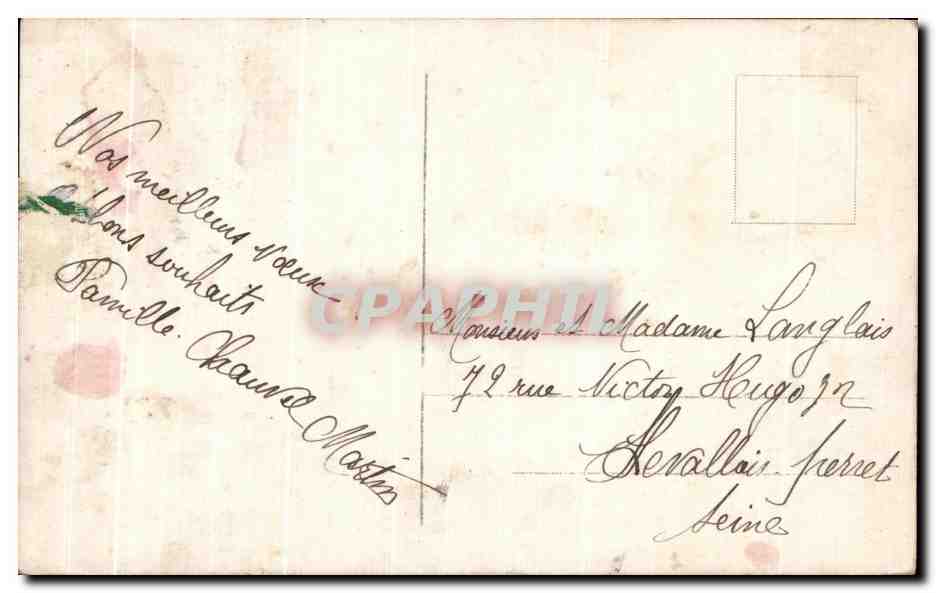 Nos meilleurs vœux
& bons souhaits
Famille. Chauvel Martin
CPAPHIL
Monsieur et Madame Langlais
72 rue Victor Hugo
Levallois perret
Seine